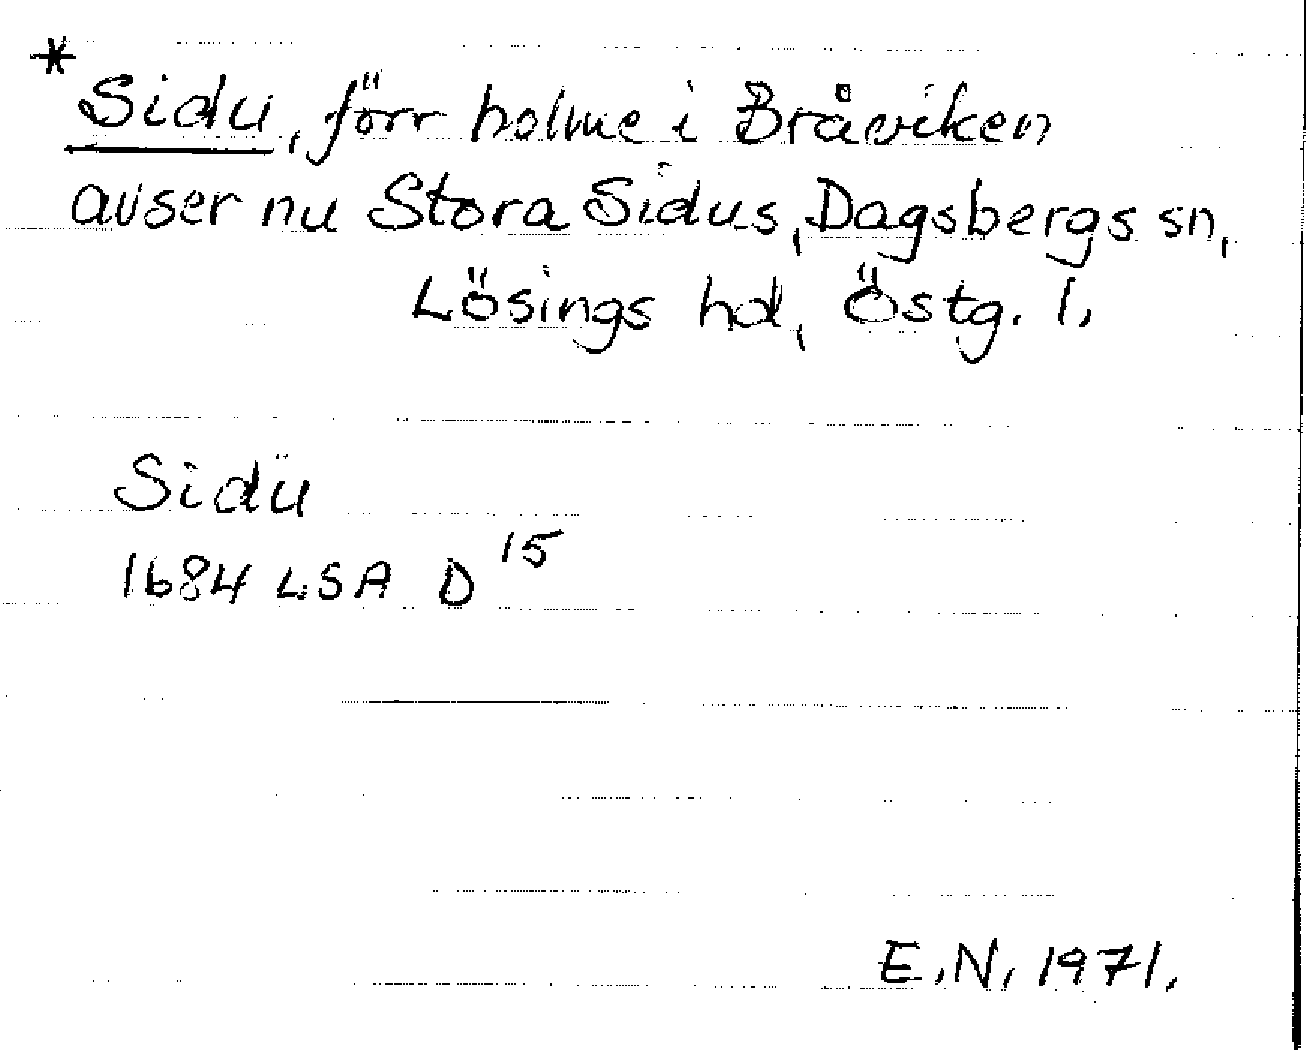 *
Sidu, förr holme i Bråviken
avser nu Stora Sidus, Dagsbergs sn,
Lösings hd, Östg. l.
Sidü
1684 LSA D 15
E.N. 1971.